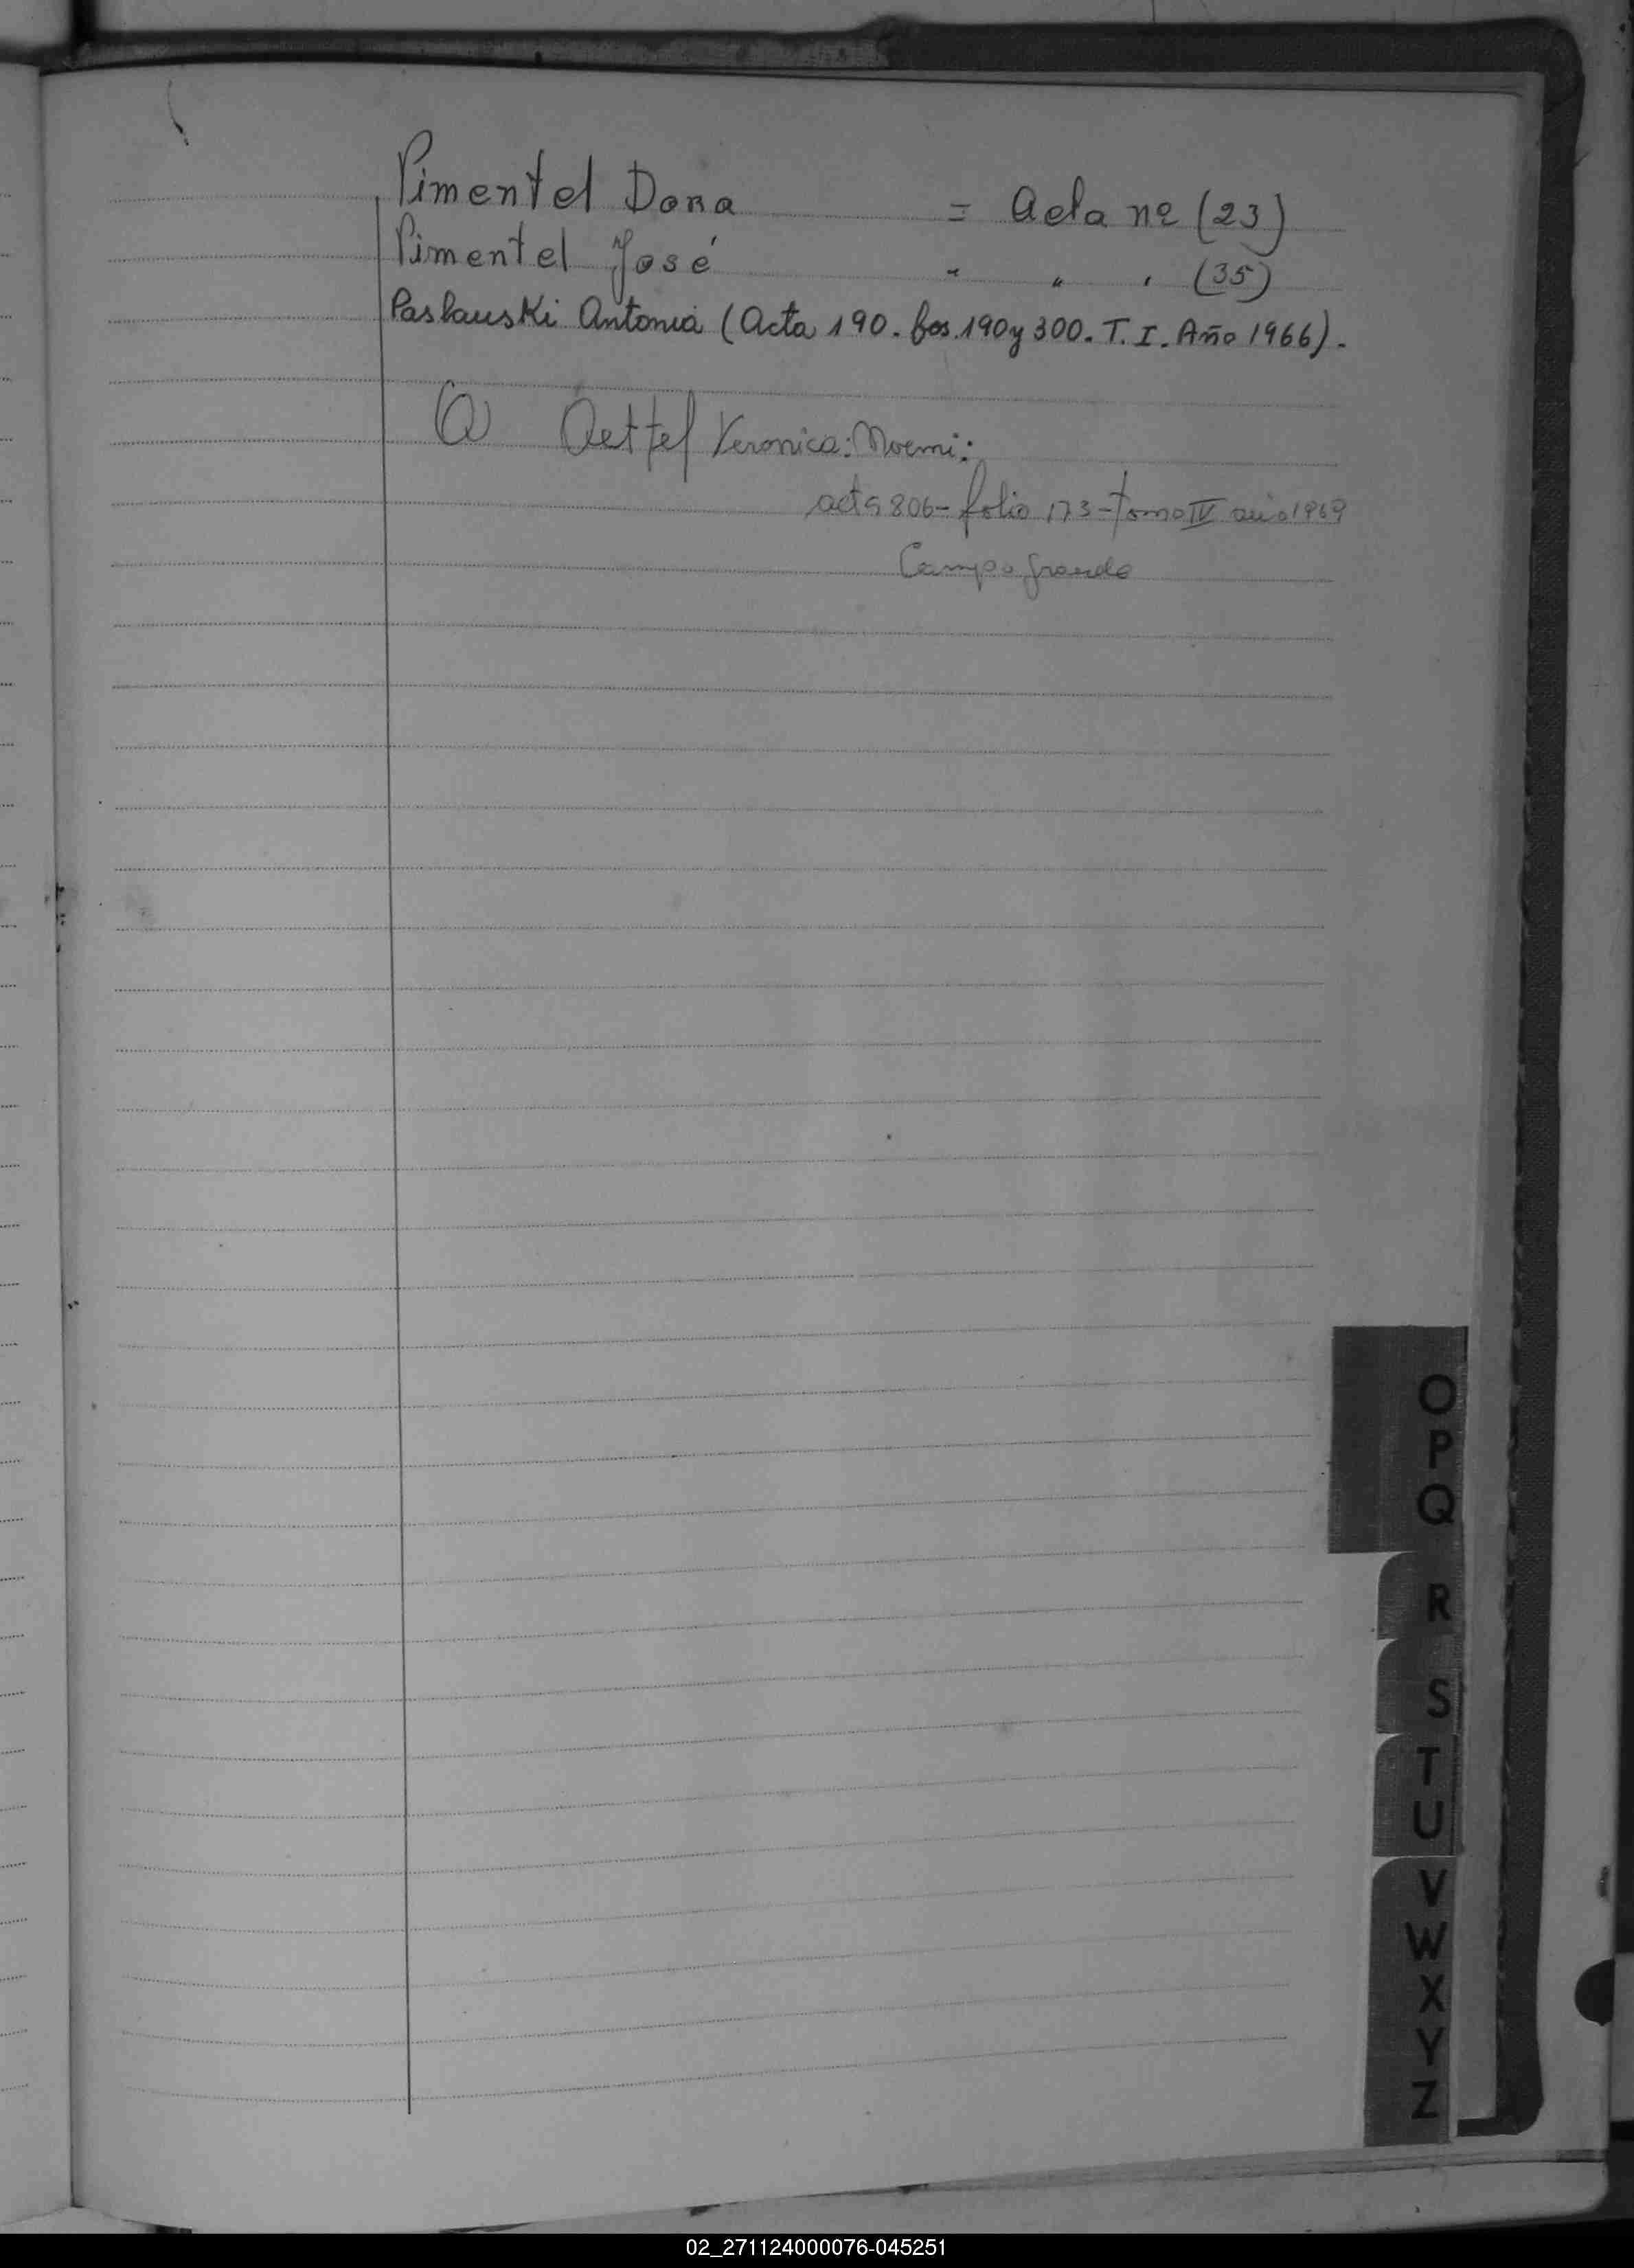 Pimentel Dora = Acta nº (23)
Pimentel José " " " (35)
Paslauski Antonia (Acta 190. fos. 190 y 300. T. I. Año 1966).
O Oettel Veronica: Noemi:
acta 806 - folio 173 - tomo IV año 1969
Campo grande
O
P
Q
R
S
T
U
V
W
X
Y
Z
02_271124000076-045251